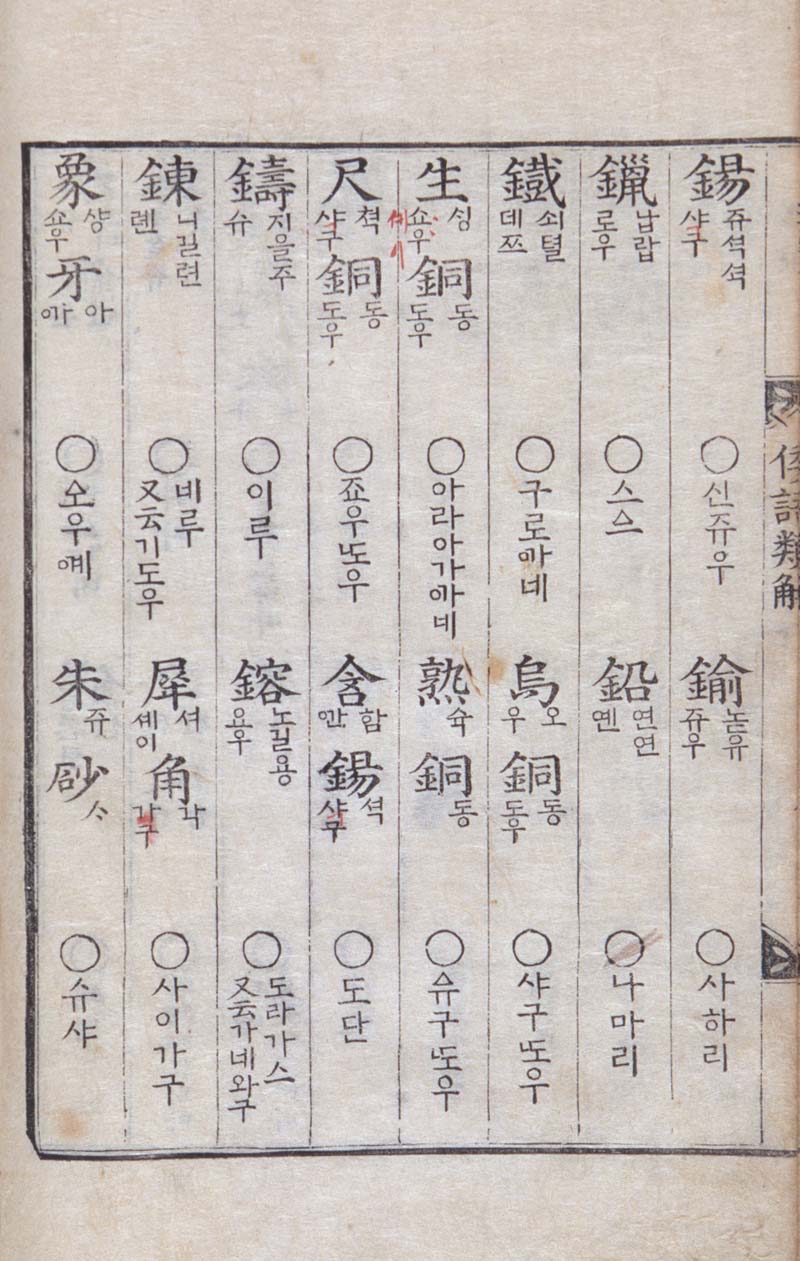 倭語類解
錫 쥬셕셕 샤구 ○신쥬우 鍮 놋유 쥬우 ○사하리
鑞 납랍 로우 ○스스 鉛 연연 옌 ○나마리
鐵 쇠텰 데쯔 ○구로까네 烏 오 우 銅 동 도우 ○샤구또우
生 싱 쇼우 銅 동 도우 ○아라아가까네 熟 슉 銅 동 ○슈구또우
尺 쳑 샤구 銅 동 도우 ○죠우또우 含 함 깐 錫 셕 샤구 ○도단
鑄 지을주 슈 ○이루 鎔 노길용 요우 ○도라가스 又云가네와구
鍊 니길련 롄 ○녜루 又云기도우 犀 셔 셰이 角 각 가구 ○사이가구
象 샹 쇼우 牙 아 까 ○오우계 朱 쥬 砂 ○슈샤